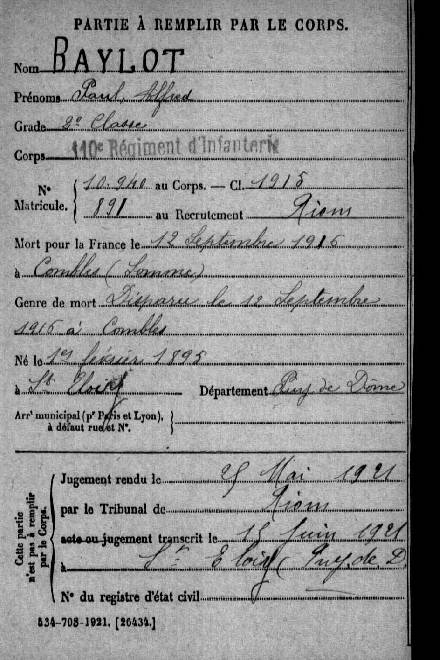 PARTIE À REMPLIR PAR LE CORPS.
Nom BAYLOT
Prénoms Paul, Alfred
Grade 2e Classe
Corps 110e Régiment d'Infanterie
N° Matricule. { 10.940 au Corps. — Cl. 1915
891 au Recrutement Riom
Mort pour la France le 12 Septembre 1916
à Combles (Somme)
Genre de mort Disparu le 12 Septembre
1916 à Combles
Né le 1er février 1895
à St Eloy Département Puy de Dôme
Arrt municipal (pr Paris et Lyon), à défaut rue et N°. }
Cette partie n'est pas à remplir par le Corps.
Jugement rendu le 25 Mai 1921
par le Tribunal de Riom
acte ou jugement transcrit le 15 Juin 1921
à St Eloy (Puy de D.
N° du registre d'état civil
534-708-1921. [26434.]